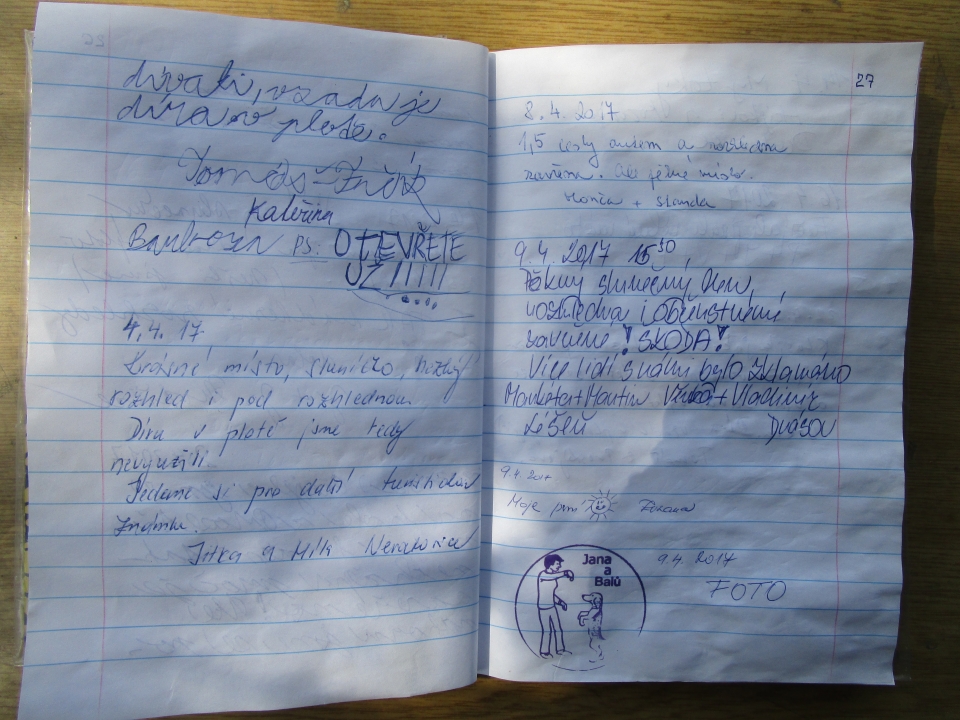 dívali, vzadu je
díra v plotě.
Tomáš
Kateřina
Barbora PS: OTEVŘETE
UŽ!!!!!!
4.4.17.
Krásné místo, sluníčko, hezký
rozhled i pod rozhlednou
Díru v plotě jsme tedy
nevyužili.
Jedeme si pro další turistickou
známku.
Jitka a Mík Neratovice
27
8.4.2017
1,5 cesty autem a rozhledna
zavřena. Ale pěkné místo.
Honza + Standa
9.4.2017 15:30
Pěkný slunečný den,
rozhledna i občerstvení
zavřené! ŠKODA!
Více lidí snámi bylo zklamáno
Markéta+Martin + Vladimír
Líšeň
9.4.2017
Moje první
Jana
a
Balů
9.4.2017
FOTO